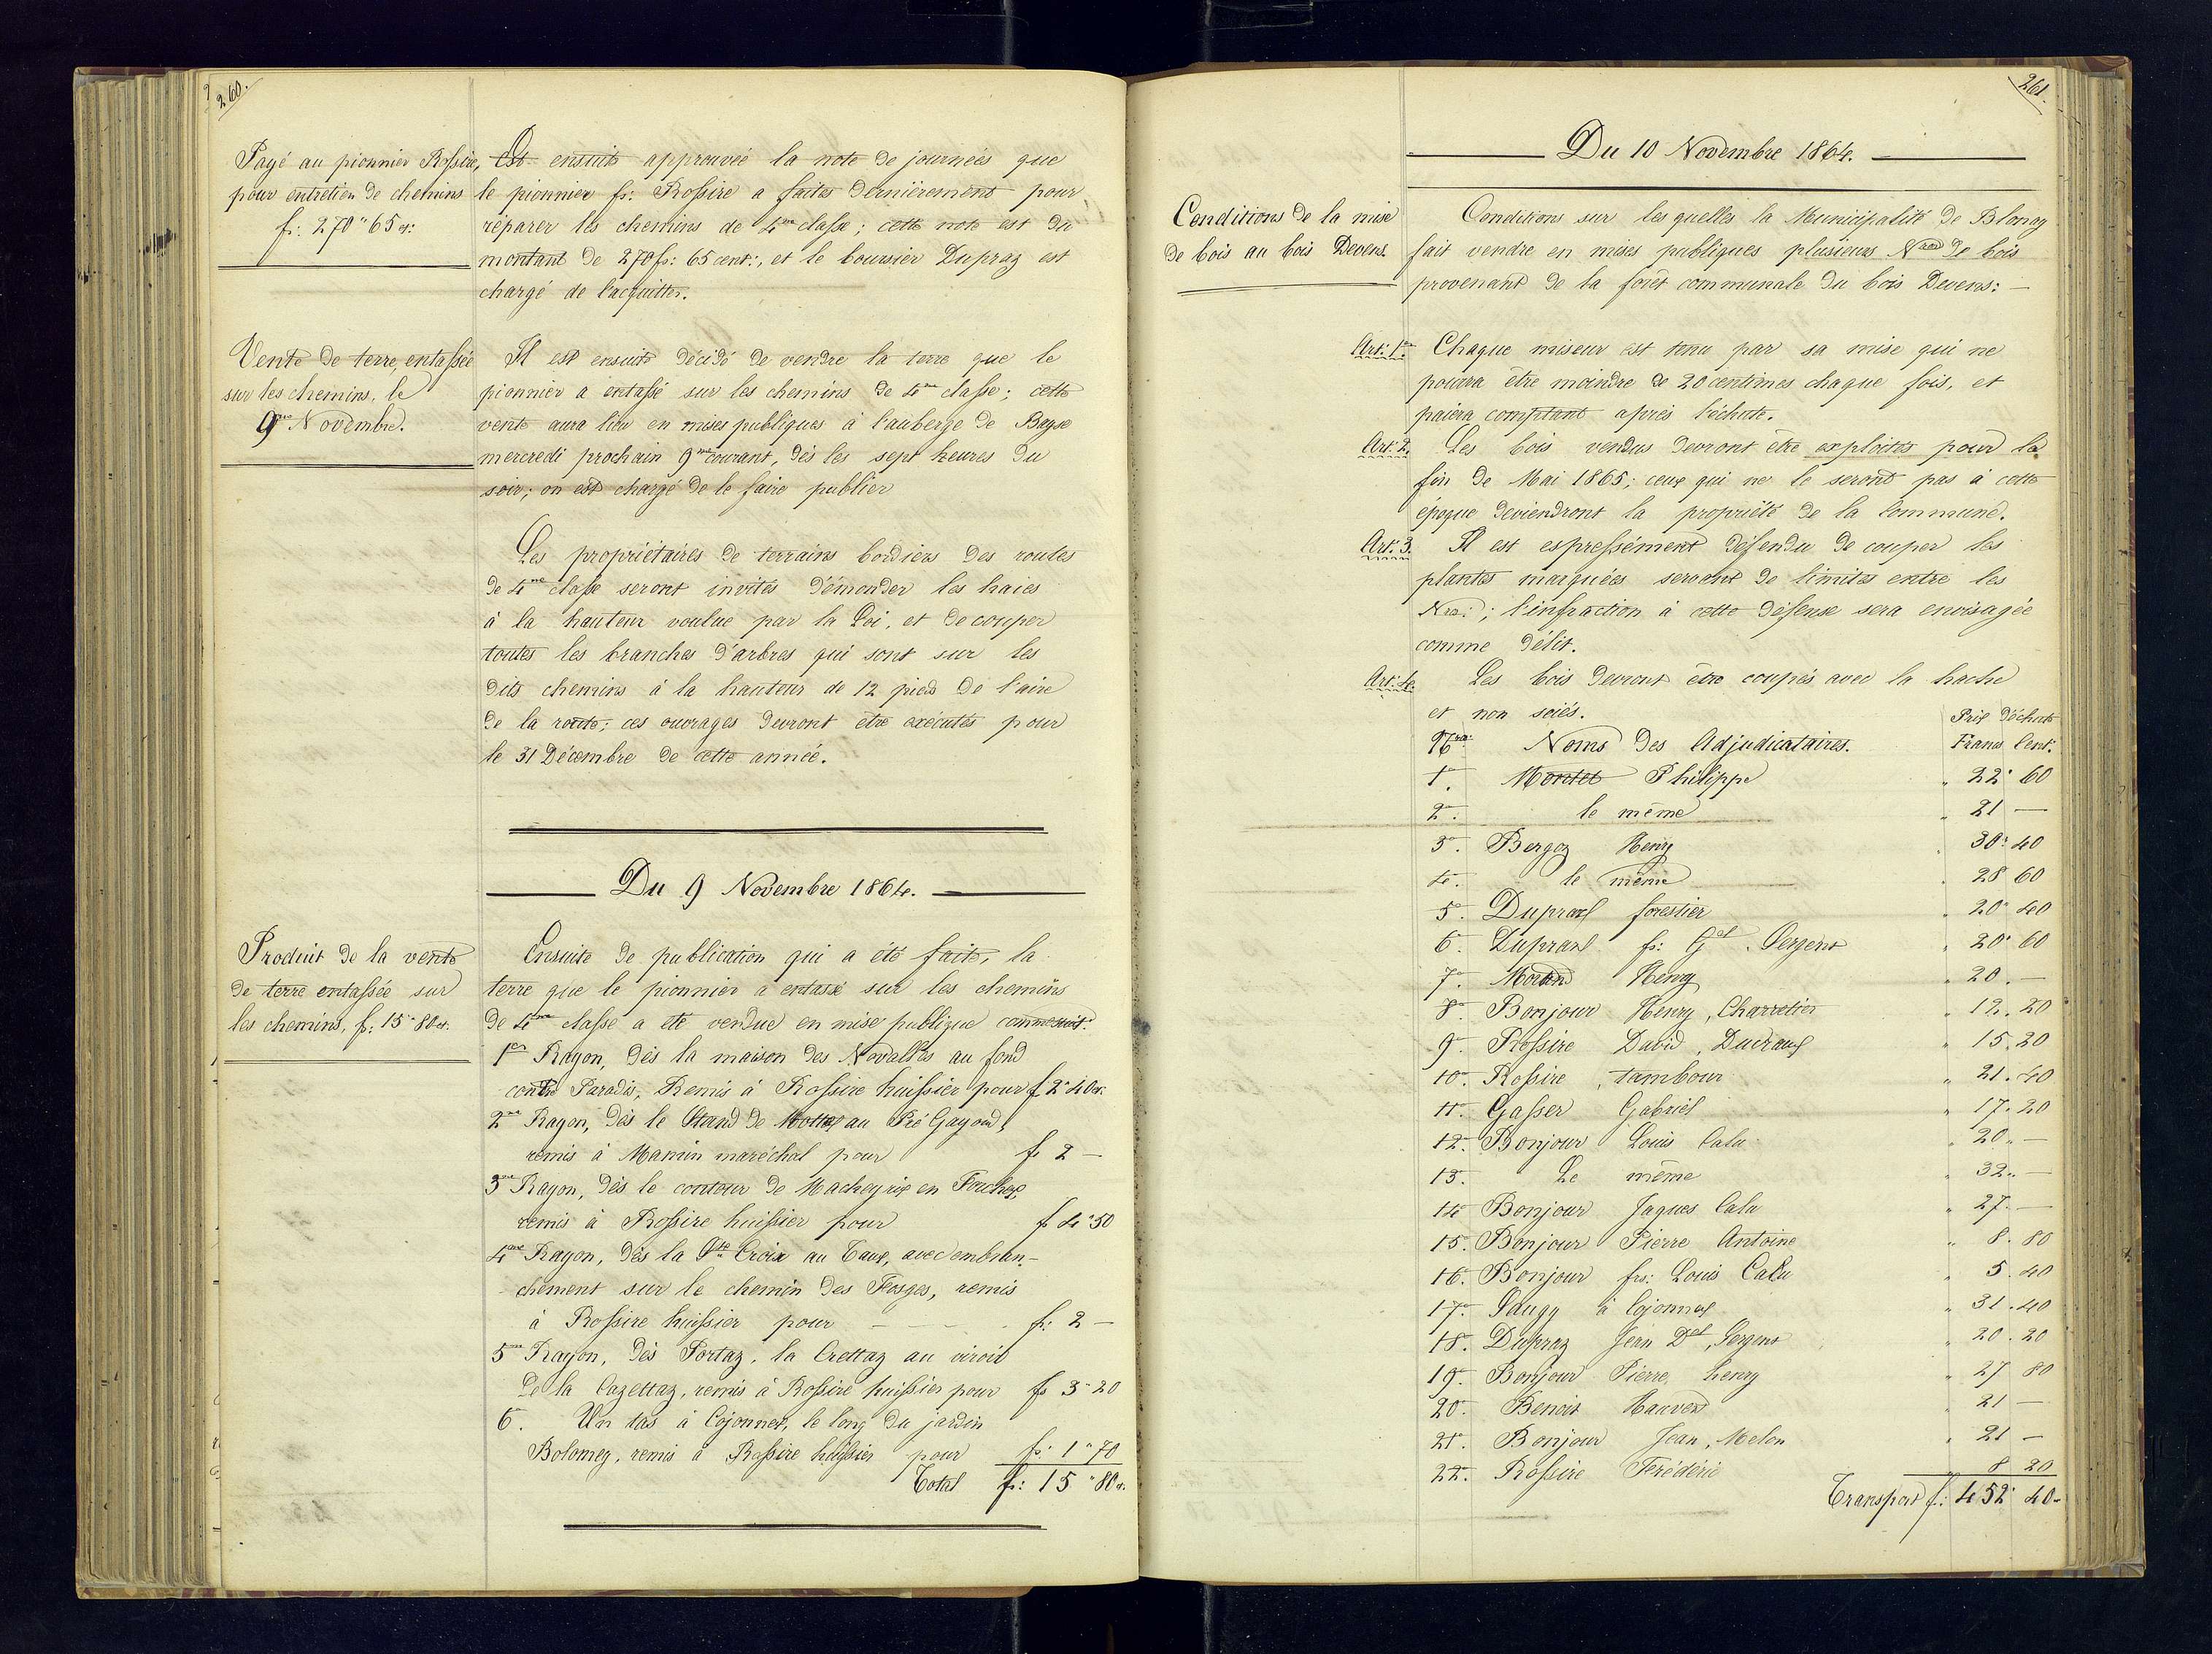 260.
Payé au pionnier Rossire,
pour entretien de chemins
fr: 270" 65 ct:
Est ensuite approuvée la note de journées que
le pionnier fs: Rossire a faites dernièrement pour
réparer les chemins de 4me classe; cette note est du
montant de 270 fr: 65 cent:, et le boursier Dupraz est
chargé de l'acquitter.
Vente de terre, entassée
sur les chemins, le
9me Novembre.
Il est ensuite décidé de vendre la terre que le
pionnier a entassé sur les chemins de 4me classe; cette
vente aura lieu en mises publiques à l'auberge de Bayse
mercredi prochain 9me courant, dès les sept heures du
soir; on est chargé de le faire publier
Les propriétaires de terrains bordiers des routes
de 4me classe seront invités d'émonder les haies
à la hauteur voulue par la Loi, et de couper
toutes les branches d'arbres qui sont sur les
dits chemins à la hauteur de 12 pieds de l'aire
de la route; ces ouvrages devront être exécutés pour
le 31 Décembre de cette année.
Du 9 Novembre 1864.
Produit de la vente
de terre entassée sur
les chemins, f: 15" 80 ct.
Ensuite de publication qui a été faite, la
terre que le pionnier a entassé sur les chemins
de 4me classe a été vendue en mise publique comme suit:
1er Rayon, dès la maison des Novalles au fond
contre Paradis, Remis à Rossire huissier pour f 2" 40 ct.
2me Rayon, dès le Stand de au Pré Gayoud,
remis à Mamin maréchal pour fr 2 —
3me Rayon, dès le contour de Macheyrix en Fouchex
remis à Rossire huissier pour fr 4" 50
4me Rayon, dès la Ste Croix au Taux, avec embran-
chement sur le chemin des Fosges, remis
à Rossire huissier pour — — — fr: 2 —
5me Rayon, dès Portaz, la Crettaz au viroit
de la Cazettaz, remis à Rossire huissier pour fr 3" 20
6. Un tas à Cojonnex, le long du jardin
Bolomey, remis à Rossire huissier pour fr: 1" 70
Total fr: 15" 80 ct.
261.
Du 10 Novembre 1864.
Conditions de la mise
de bois au bois Devens.
Conditions sur lesquelles la Municipalité de Blonay
fait vendre en mises publiques plusieurs Nros de bois
provenant de la forêt communale du bois Devens: —
Art: 1er Chaque miseur est tenu par sa mise qui ne
pourra être moindre de 20 centimes chaque fois, et
paiera comptant après l'échute.
Art: 2. Les bois vendus devront être exploités pour la
fin de Mai 1865; ceux qui ne le seront pas à cette
époque deviendront la propriété de la Commune.
Art: 3. Il est expressément défendu de couper les
plantes marquées servant de limites entre les
Nros; l'infraction à cette défense sera envisagée
comme délit.
Art: 4. Les bois devront être coupés avec la hache
et non sciés.
Prix d'échute
Nros. Noms des Adjudicataires. Francs Cent:
1. Montet Philippe " 22" 60
2. le même " 21 —
3. Bergoz Henry " 30" 40
4. le même " 28 60
5. Dupraz forestier " 20" 40
6. Dupraz fs: Gel. Sergent " 20" 60
7. Morand Henry " 20. —
8. Bonjour Henry, Charretier " 12. 20
9. Rossire David, " 15. 20
10. Rossire, tambour " 21. 40
11. Gasser Gabriel " 17. 20
12. Bonjour Louis Calu " 20. —
13. Le même " 32. —
14 Bonjour Jaques Calu " 27. —
15. Bonjour Pierre Antoine " 8. 80
16. Bonjour frs: Louis Calu " 5. 40
17. Saugy à Cojonnex " 31. 40
18. Dupraz Jean Del, Sergent " 20. 20
19. Bonjour Pierre, henry " 27 80
20. Benoit " 21 —
21. Bonjour Jean, Melon " 21 —
22. Rossire Frédéric " 8 20
Transport f: 452" 40